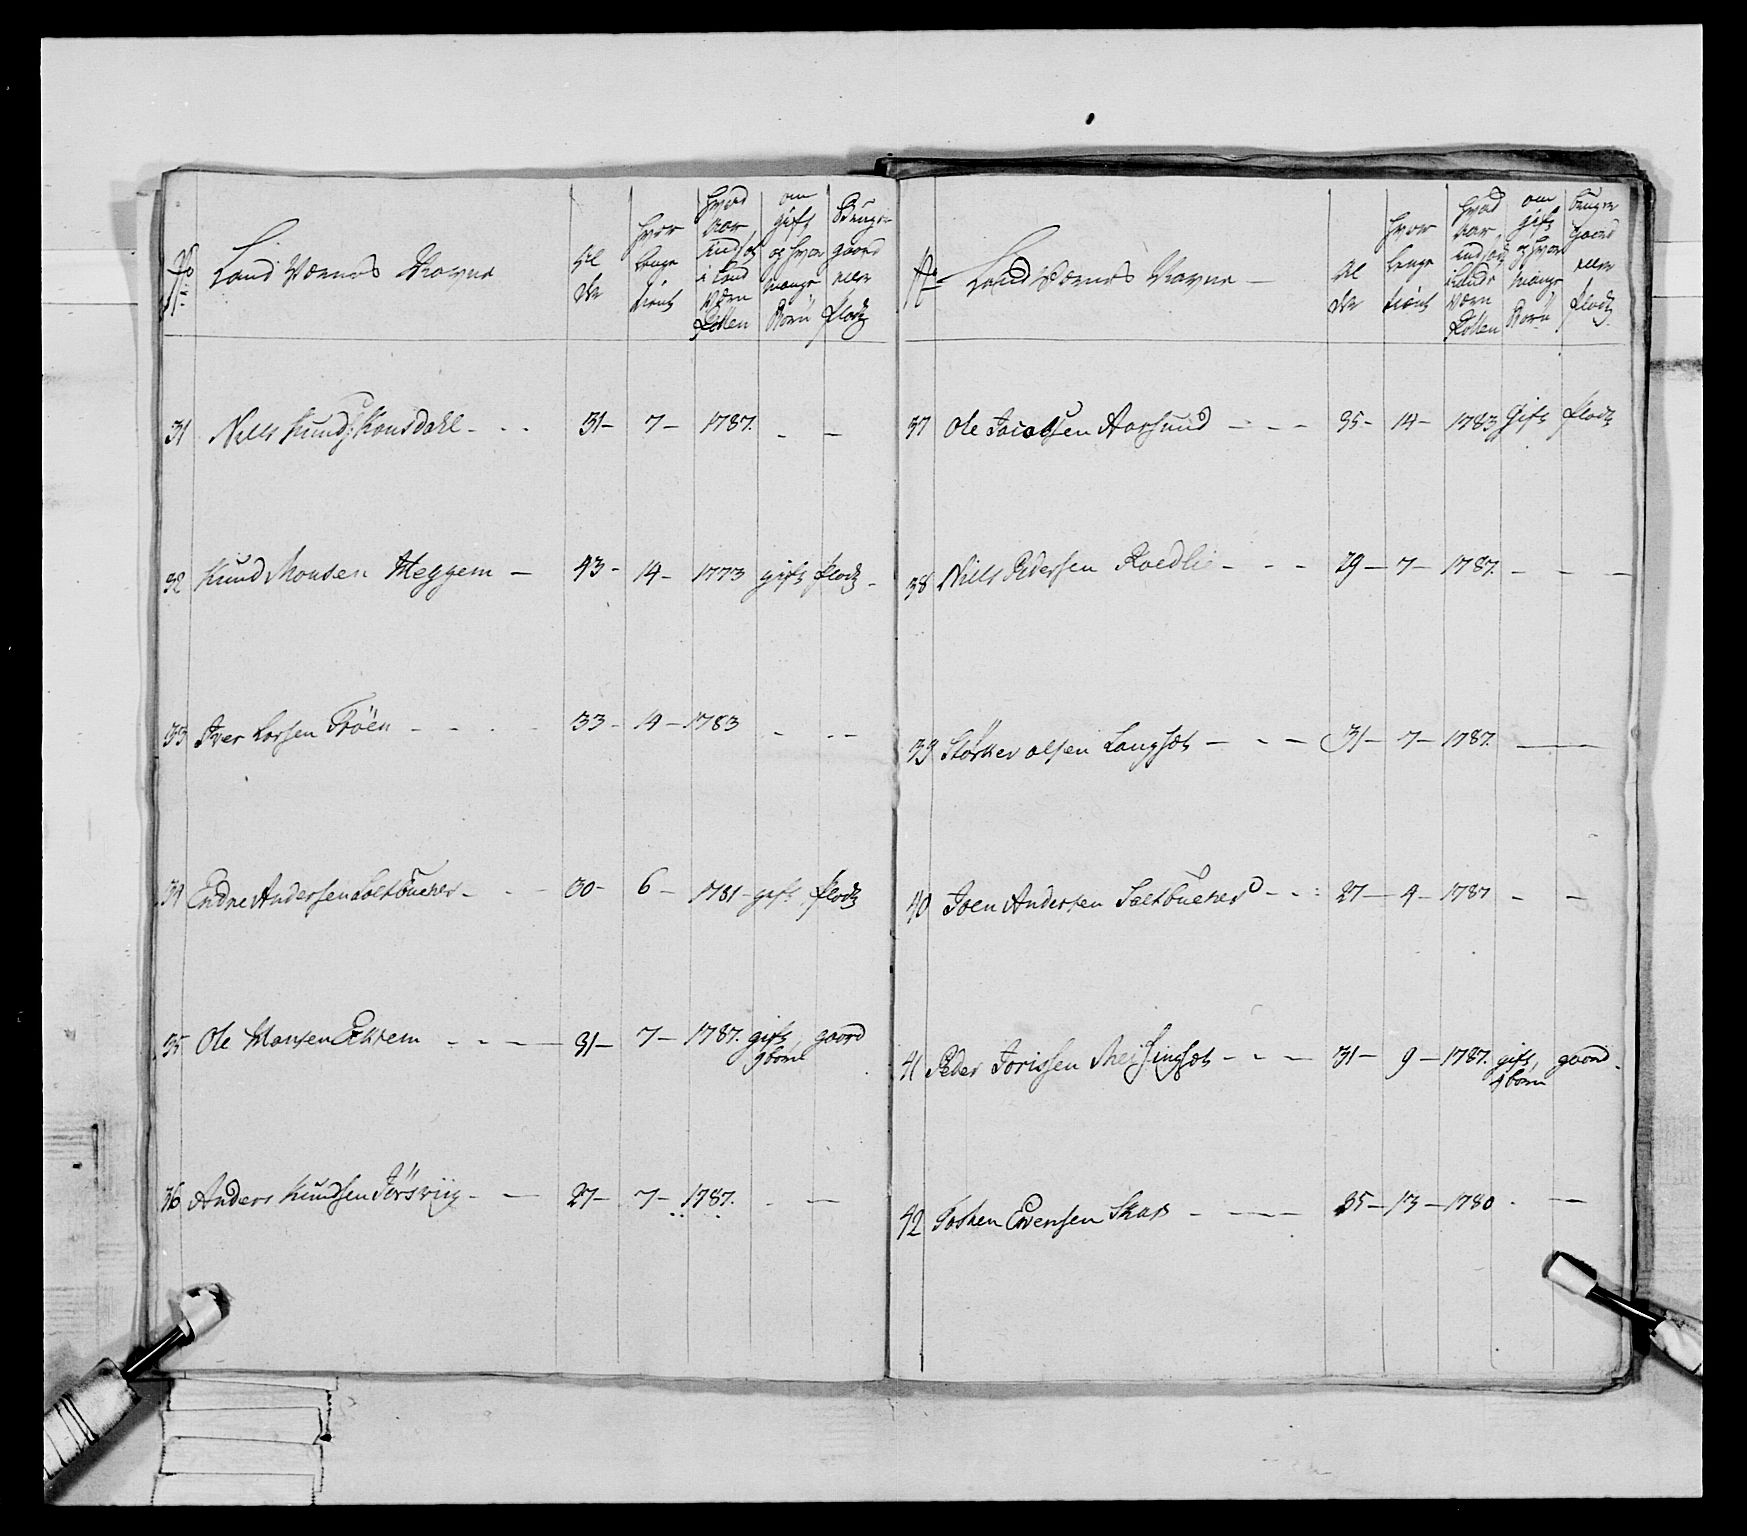 No
Land Værnets Navne
Al
der
hvor
lenge
tient
hvad
Aar
inds
i Land
Værn
Rollen
om
gift
og hvor
mange
Børn
Beuger
gaard
eller
Plads
31 Nills Knuds: Kansdahl - - - 31 - 7 - 1787. - -
32 Knud Monsen Meggem - 43 - 14 - 1773 gift Plads -
33 Iver Larsen Trøen - - - 33 - 14 - 1783 - - -
34 Endre Andersen Saltbuener - - - 30 - 6 - 1781 - gift Plads
35 Ole Monsen Ekrem - - - - 31 - 7 - 1787. gift gaard
1 børn
36 Anders Knudsen Jørsviig - - 27 - 7 - 1787. - -
No Land Værnets Navne -
Al
der
hvor
lenge
tient
hvad
Aar
inds
i Land
Værn
Rollen
om
gift
og hvor
mange
Børn
beuger
gaard
eller
Plads
37 Ole Jacobsen Aarsund - - - 35 - 14 - 1783 Gift Plads
38 Nills Pedersen Roedlie - - - 29 - 7 - 1787. - - -
39 Størker olsen Langset - - - 31 - 7 - 1787. -
40 Joen Andersen Saltbuener - - 27 - 4 - 1787 - -
41 Peder Jorissen Meisingset - - - 31 - 9 - 1787. gift gaard
1 børn
42 Iosten Evensen Skar - - - 35 - 13 - 1780 - -